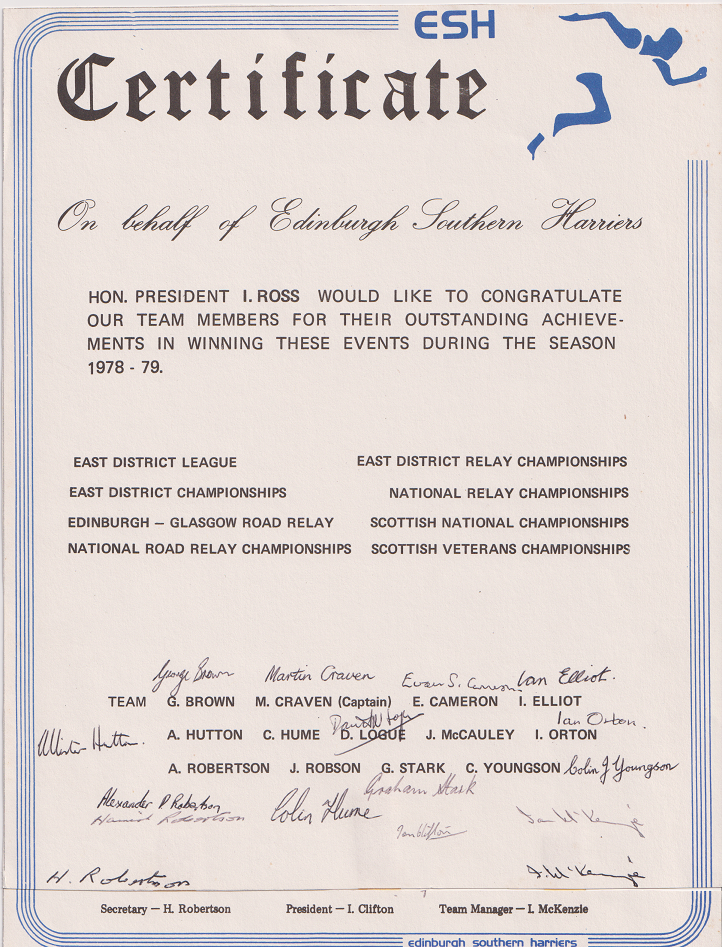 ESH
Certificate
On behalf of Edinburgh Southern Harriers
HON. PRESIDENT I. ROSS WOULD LIKE TO CONGRATULATE
OUR TEAM MEMBERS FOR THEIR OUTSTANDING ACHIEVE-
MENTS IN WINNING THESE EVENTS DURING THE SEASON
1978 - 79.
EAST DISTRICT LEAGUE EAST DISTRICT RELAY CHAMPIONSHIPS
EAST DISTRICT CHAMPIONSHIPS NATIONAL RELAY CHAMPIONSHIPS
EDINBURGH – GLASGOW ROAD RELAY SCOTTISH NATIONAL CHAMPIONSHIPS
NATIONAL ROAD RELAY CHAMPIONSHIPS SCOTTISH VETERANS CHAMPIONSHIPS
George Brown Martin Craven Ewan S. Cameron Ian Elliot.
TEAM G. BROWN M. CRAVEN (Captain) E. CAMERON I. ELLIOT
David Logue Ian Orton.
Allister Hutton. A. HUTTON C. HUME D. LOGUE J. McCAULEY I. ORTON
A. ROBERTSON J. ROBSON G. STARK C. YOUNGSON Colin J Youngson
Graham Stark
Alexander P Robertson Colin Hume
Hamish Robertson Ian Clifton Ian McKenzie
H. Robertson I. McKenzie
Secretary – H. Robertson President – I. Clifton Team Manager – I. McKenzie
edinburgh southern harriers